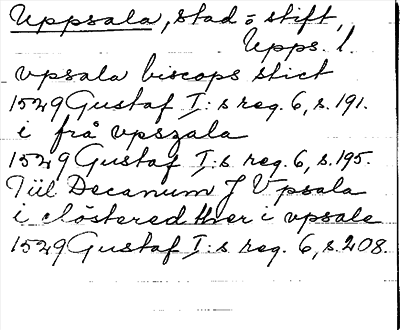 Uppsala, stad = stift,
Upps. l.
vpsala biscops stict
1529 Gustaf I:s reg. 6, s. 191.
i frå vpszala
1529 Gustaf I:s reg. 6, s. 195.
Tiil Decanum J Vpsala
i clöstered ther i vpsale
1529 Gustaf I:s reg. 6, s. 208.